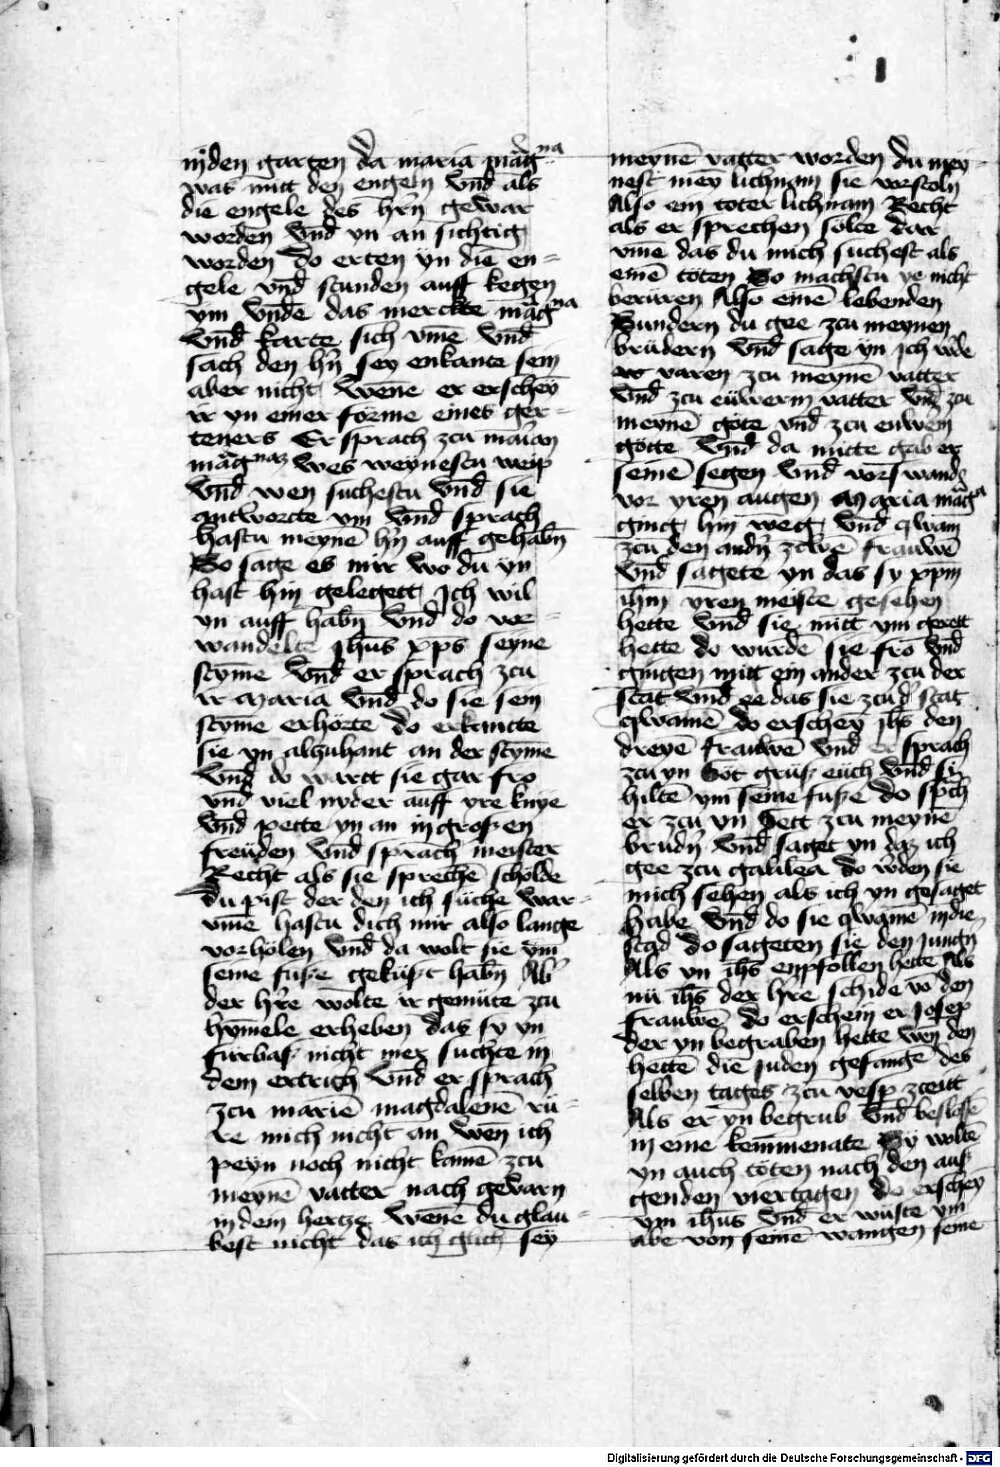 inden garten da maria mag̃na
was mitt den engeln vnd als
die engele des hr̃n gewar
worden vnd yn an sichtig
worden do erten yn die en-
gele vnd stunden auff kegen
ym vnde das merckte mag̃na
vnd karte sich vm̄e vnd
sach den hr̃n sey enkante sein
aber nicht wēne er erschey̅
ir yn einer forme eines ger-
teners Er sprach zcu mariā
mag̃naz wes weynestu weip
vnd wen suchestu vnd sie
antworcte ym vnd sprach
hastu meyne hr̃n auff gehabn̄
So sage es mir wo du yn
hast hin gelegett Ich wil
yn auff habn̄ vnd do ver-
wandelte jhūs xp̄s seyne
stym̄e vnd er sprach zcu
ir Maria vnd do sie sein
styme erhorte do erkante
sie yn alzuhant an der stym̄e
vnd do wartt sie gar fro
vnd viel nyder auff yre knye
vnd pette yn an in großen
freüden vnd sprach meister
Recht als sie sprechē scholde
Du pist der den ich süche war-
vm̄e hastu dich mir also lange
vorholen vnd da wolt sie ym
seine fuße geküßt habn̄ Ab̃
der hr̃e wolte ir gemüte zcu
hym̄ele erheben das sy yn
fürbaß nicht mer suchte in
dem ertrich vnd er sprach
zcu mariē magdalenē rü-
re mich nicht an wen̄ ich
peyn noch nicht kōmē zcu
meynē vatter noch gevarn
in dem hertze wēne du glau-
best nicht das ich glich sey
meynē vatter worden du mey-
nest mey̅ lichnam sie vorstoln
Also ein toter lichnam Recht
als er sprechen solte dar
vm̄e das du mich suchest als
einē toten So machstu ye nicht
berüren Also einē lebenden
Sundern du gee zcu meynen
brüdern vnd sage yn Ich wde
varen zcu meynē vatter
vnd zcu eüwerm vatter vnd zcu
meynē gote vnd zcu euwem
gotte vnd da mitte gab er
seinē segen vnd vorswand
vor yren augen Maria mag̃a
ging hin weg vnd qwam
zcu den and̃n zcwē frauwē
vnd sagete yn das sy xp̄m
ihm yren meiste gesehen
hette vnd sie mitt ym gerett
hette do wurdē sie fro vnd
gingen mitt ein ander zcu der
stat vnd ee das sie zcu d̃ stat
qwamē do erschey̅ jhs den
dreyē frauwē vnd er sprach
zcu yn Got grüß eüch vnd sy
hiltē ym seine fuße do sp̃ch
er zcu yn Gett zcu meynē
brüd̃n vnd saget yn daz ich
gee zcu galilea do w̃den sie
mich sehen als ich yn gesaget
habe vnd do sie qwamē in die
stad do sageten sie den jung̃n
Als yn ihs enpfollen hette Als
nü ihs der hr̃e schide vō den
frauwē do erschein er Josep
der yn begraben hette wen̄ den
hettē die juden gefange des
selben tages zcu vesp zceitt
Als er yn begrub vnd beslossē
in eine kem̄menate Sy woltē
yn auch töten nach den auß
genden viertagen do erschey̅
ym ihūs vnd er wüste ym
abe von seinē wangen seine